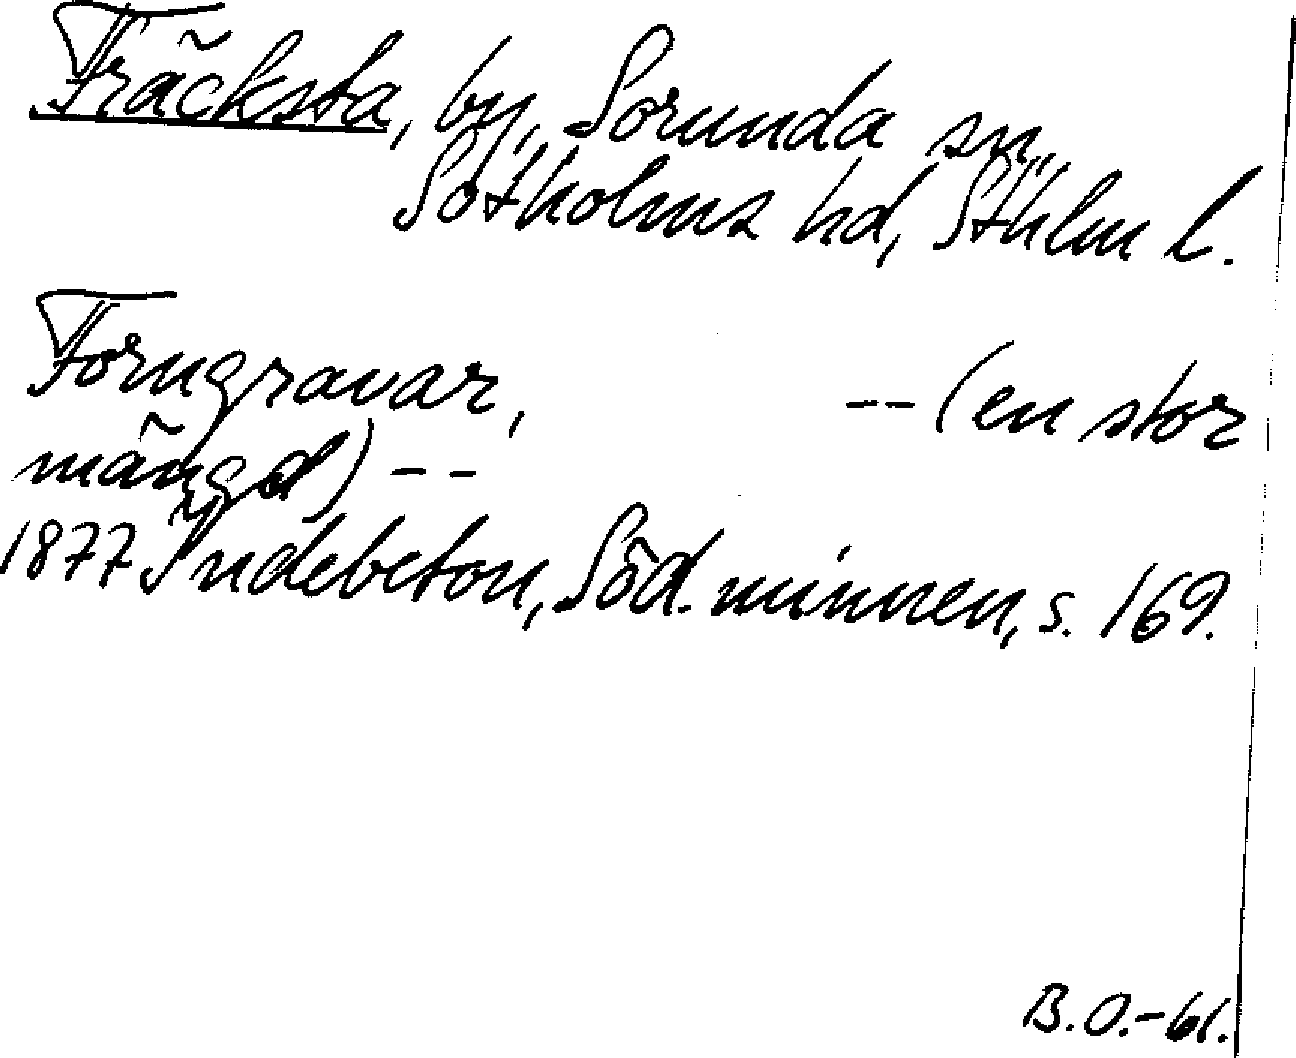 Fräcksta, by, Sorunda sn,
Sotholms hd, Sthlm l.
Forngravar, -- (en stor
mängd) --
1877 Indebetou, Söd. minnen, s. 169.
B.O.-61.